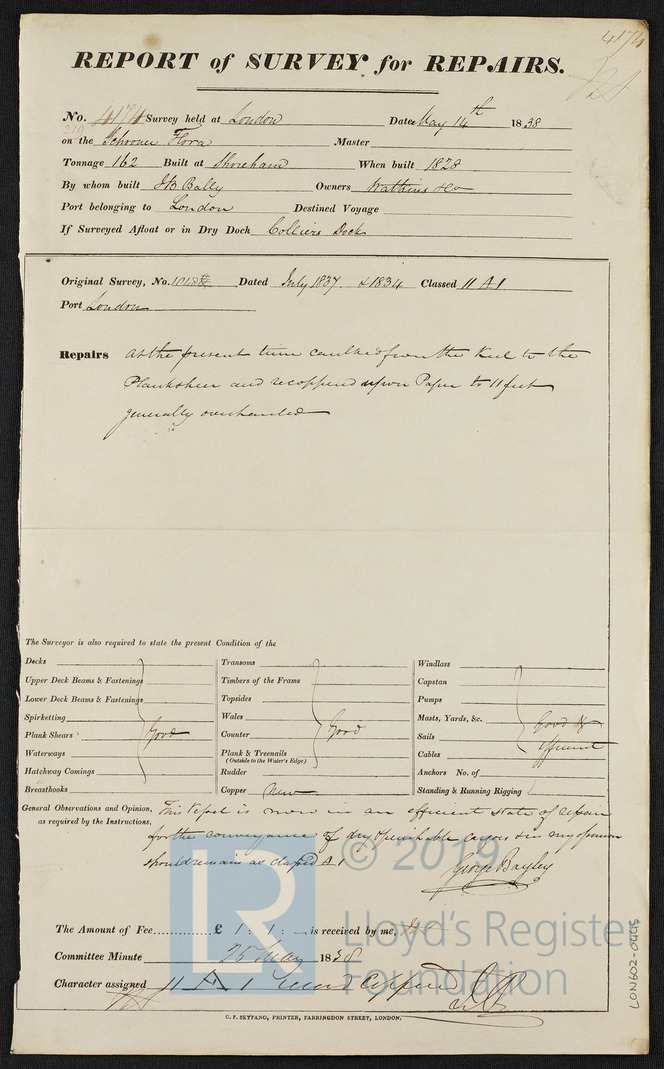 4174
REPORT of SURVEY for REPAIRS.
No. 4174 Survey held at London Date May 14th 1838
on the Schooner Flora Master
Tonnage 162 Built at Shoreham When built 1828
By whom built JB Bally Owners Watkins & Co
Port belonging to London Destined Voyage
If Surveyed Afloat or in Dry Dock Colliers Dock
Original Survey, No. Dated July 1837. & 1834 Classed 11 A1
Port London
Repairs At the present time caulked from the Keel to the
Planksheer and recoppered upon Paper to 11 feet
generally overhauled
The Surveyor is also required to state the present Condition of the
Decks
Upper Deck Beams & Fastenings
Lower Deck Beams & Fastenings
Spirketting
Plank Shears Good
Waterways
Hatchway Comings
Breasthooks
Transoms
Timbers of the Frame
Topsides
Wales
Counter Good
Plank & Treenails
(Outside to the Water's Edge)
Rudder
Copper New
Windlass
Capstan
Pumps
Masts, Yards, &c. Good &
Sails efficient
Cables
Anchors No. of
Standing & Running Rigging
General Observations and Opinion, This Vessel is now in an efficient state of repair
as required by the Instructions.
for the conveyance of dry & perishable cargoes & in my opinion
should remain as classed A1
George Bayley
The Amount of Fee £ 1 : 1 : — is received by me,
Committee Minute 25 May 1838
Character assigned 11 A 1
© 2019
Lloyd's Register
Foundation
LR
C. F. SEYFANG, PRINTER, FARRINGDON STREET, LONDON.
LON602-0445